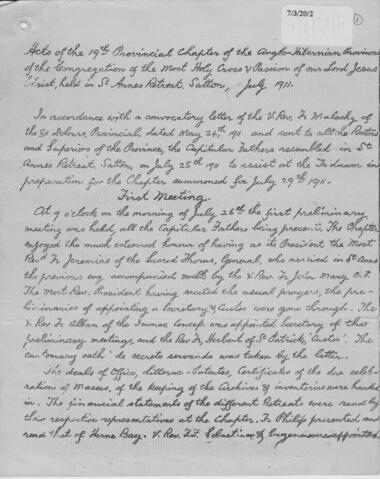 7/3/20/2
1
Acts of the 19th Provincial Chapter of the Anglo-Hibernian Province
of the Congregation of the Most Holy Cross & Passion of our Lord Jesus
Christ, held in St Annes Retreat, Sutton, July 1911.
In accordance with a convocatory letter of the V. Rev. Fr Malachy of
the 50 Dolours, Provincial, dated May 24th 1911 and sent to all the Rectors
and Superiors of the Province, the Capitular Fathers assembled in St
Annes Retreat, Sutton, on July 25th 1911 to assist at the Triduum in
preparation for the Chapter summoned for July 29th 1911.
First Meeting.
At 9 o'clock on the morning of July 26th the first preliminary
meeting was held, all the Capitular Fathers being present. The Chapter
enjoyed the much esteemed honour of having as its President the Most
Rev Fr Jeremias of the Sacred Thorns, General, who arrived in St Annes
the previous eng. accompanied by the V. Rev Fr John Mary C.P.
The Most Rev. President having recited the usual prayers, the pre-
liminaries of appointing a Secretary & Custos were gone through. The
V Rev Fr Alban of the Immac Concep. was appointed Secretary of this
preliminary meeting, and the Rev Fr Herbert of St Patrick, 'Custos'. The
customary oath 'de secreto servando' was taken by the latter.
The Seals of Office, litterae-Patentes, Certificates of the due cele-
bration of Masses, of the keeping of the Archives & inventories were handed
in. The financial statements of the different Retreats were read by
their respective representatives at the Chapter. Fr Philip presented and
read that of Herne Bay. V. Rev. F.F. Sebastian & Eugene were appointed